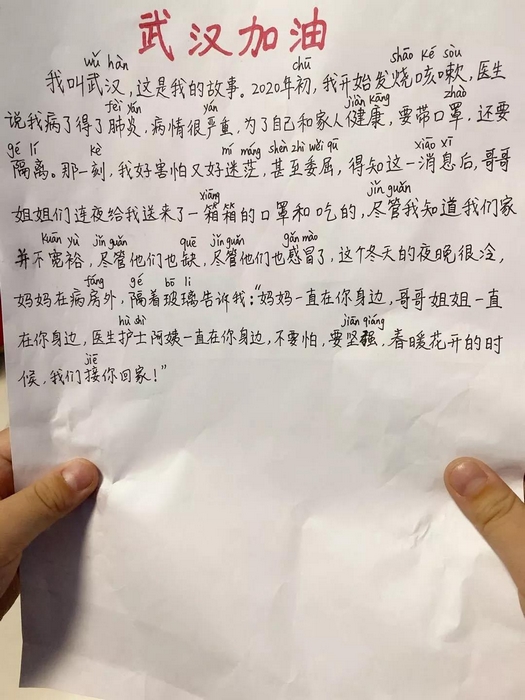 武汉加油
wǔ hàn chū shāo ké sòu
我叫武汉，这是我的故事。2020年初，我开始发烧咳嗽，医生
fèi yán yán jiàn kāng zhào
说我病了得了肺炎，病情很严重，为了自己和家人健康，要带口罩，还要
gé lí kè mí máng shèn zhì wěi qū xiāo xī
隔离。那一刻，我好害怕又好迷茫，甚至委屈，得知这一消息后，哥哥
xiāng jǐn guǎn
姐姐们连夜给我送来了一箱箱的口罩和吃的，尽管我知道我们家
kuān yù jǐn guǎn quē jǐn guǎn gǎn mào
并不宽裕，尽管他们也缺，尽管他们也感冒了，这个冬天的夜晚很冷，
fáng gé bō li
妈妈在病房外，隔着玻璃告诉我：“妈妈一直在你身边，哥哥姐姐一直
hù shì jiān qiáng
在你身边，医生护士阿姨一直在你身边，不要怕，要坚强，春暖花开的时
jiē
候，我们接你回家！”